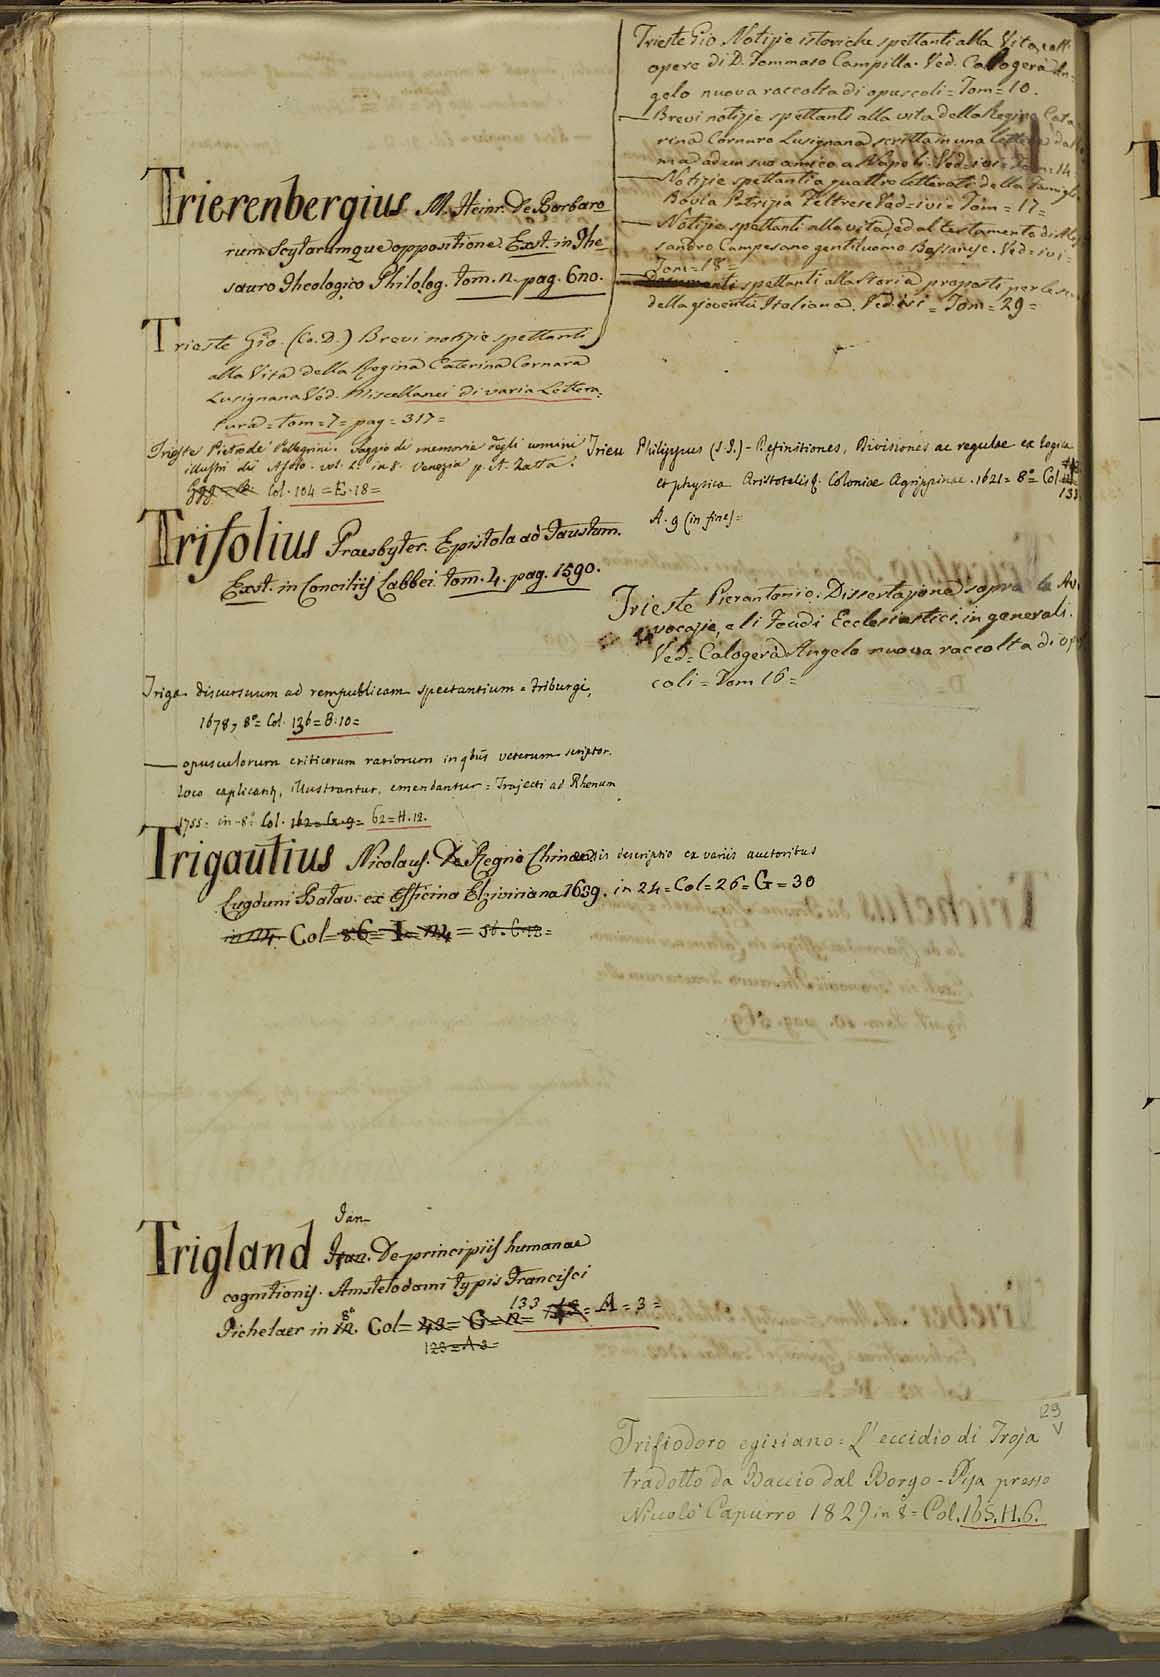 Trierenbergius M. Heinr. De Barbaro
rum Scytarumque oppositione. Exst. in The
sauro Theologico Philolog. tom. 2. pag. 620.
Trieste Gio. (Co. D.) Brevi notizie spettanti
alla Vita della Regina Caterina Cornara
Lusignana Ved. Miscellanei di varia Lettera
tura = tom = 7 = pag = 317 =
Trieste Pietro de' Pellegrini. Saggio di memorie degli uomini
illustri di Asolo. vol. in 8. Venezia p. A. Zatta.
Col. 104 = E. 18 =
Trifolius Praesbyter. Epistola ad Faustum.
Exst. in Conciliis Labbei tom. 4. pag. 1590.
Triga discursuum ad rempublicam spectantium = Friburgi,
1678, 8º = Col. 136 = B. 10 =
— opusculorum criticorum rariorum in qbus veterum scriptor.
loca explicantq, illustrantur, emendantur = Trajecti ad Rhenum
1755 = in-8º Col. 162 = G. 9 = 62 = H. 12.
Trigautius Nicolaus. De Regno Chinae descriptio ex variis auctoritus
Lugduni Batav. ex Officina Elziviriana 1639. in 24 = Col = 26 = G = 30
in 24. Col = 86 = I = 24 =
Trigland Jan. De principiis humanae
Jan
cognitionis. Amstelodami typis Francisci
Pichelaer in 8º Col = 43 = G = 12 = 133 = A = 3 =
123 = A 3 =
Trieste Gio Notizie istoriche spettanti alla Vita, e all'
opere di D. Tommaso Campilla. Ved. Calogerà An-
gelo nuova raccolta di opuscoli = Tom = 10.
— Brevi notizie spettanti alla vita della Regina Cata
rina Cornaro Lusignana scritta in una lettera
ad un suo amico a Napoli. Ved = ivi = Tom = 14
— Notizie spettanti a quattro letterati della famigl.
Bovia Patrizia Feltrese Ved = ivi = Tom = 17 =
— Notizie spettanti alla vita, ed al testamento di Ales
sandro Campesano gentiluomo Bassanese. Ved = ivi =
Tom = 18 =
— Documenti spettanti alla Storia proposti per
della gioventù Italiana. Ved. ivi = Tom = 29 =
Trieu Philippus (S. J.) - Definitiones, Divisiones ac regulae ex logica
et physica Aristotelis &. Coloniae Agrippinae. 1621 = 8º = Col.
133
A. 9 (in fine) =
Trieste Pierantonio. Dissertazione sopra le Av
vocazie, e li Feudi Ecclesiastici in generali.
Ved = Calogerà Angelo nuova raccolta di opus
coli = Tom 16 =
29
Trifiodoro egiziano = L'eccidio di Troja
tradotto da Baccio dal Borgo - Pisa presso
Niccolò Capurro 1829 in 8 = Col. 165. H. 6.